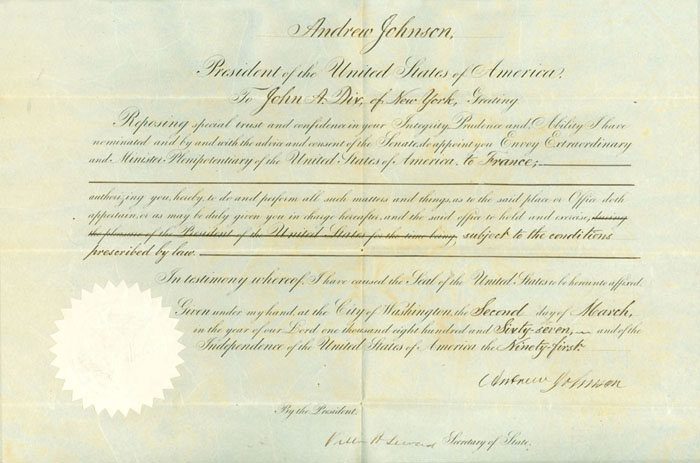 Andrew Johnson,
President of the United States of America.
To John A. Dix, of New York, Greeting
Reposing special trust and confidence in your Integrity, Prudence and Ability I have
nominated and by and with the advice and consent of the Senate do appoint you Envoy Extraordinary
and Minister Plenipotentiary of the United States of America to France;
authorizing you, hereby, to do and perform all such matters and things, as to the said place or Office doth
appertain, or as may be duly given you in charge hereafter, and the said office to hold and exercise, during
the pleasure of the President of the United States for the time being, subject to the conditions
prescribed by law.
In testimony whereof, I have caused the Seal of the United States to be hereunto affixed.
Given under my hand, at the City of Washington, the Second day of March,
in the year of our Lord one thousand eight hundred and Sixty-seven, and of the
Independence of the United States of America, the Ninety-first.
Andrew Johnson
By the President.
William H Seward Secretary of State.